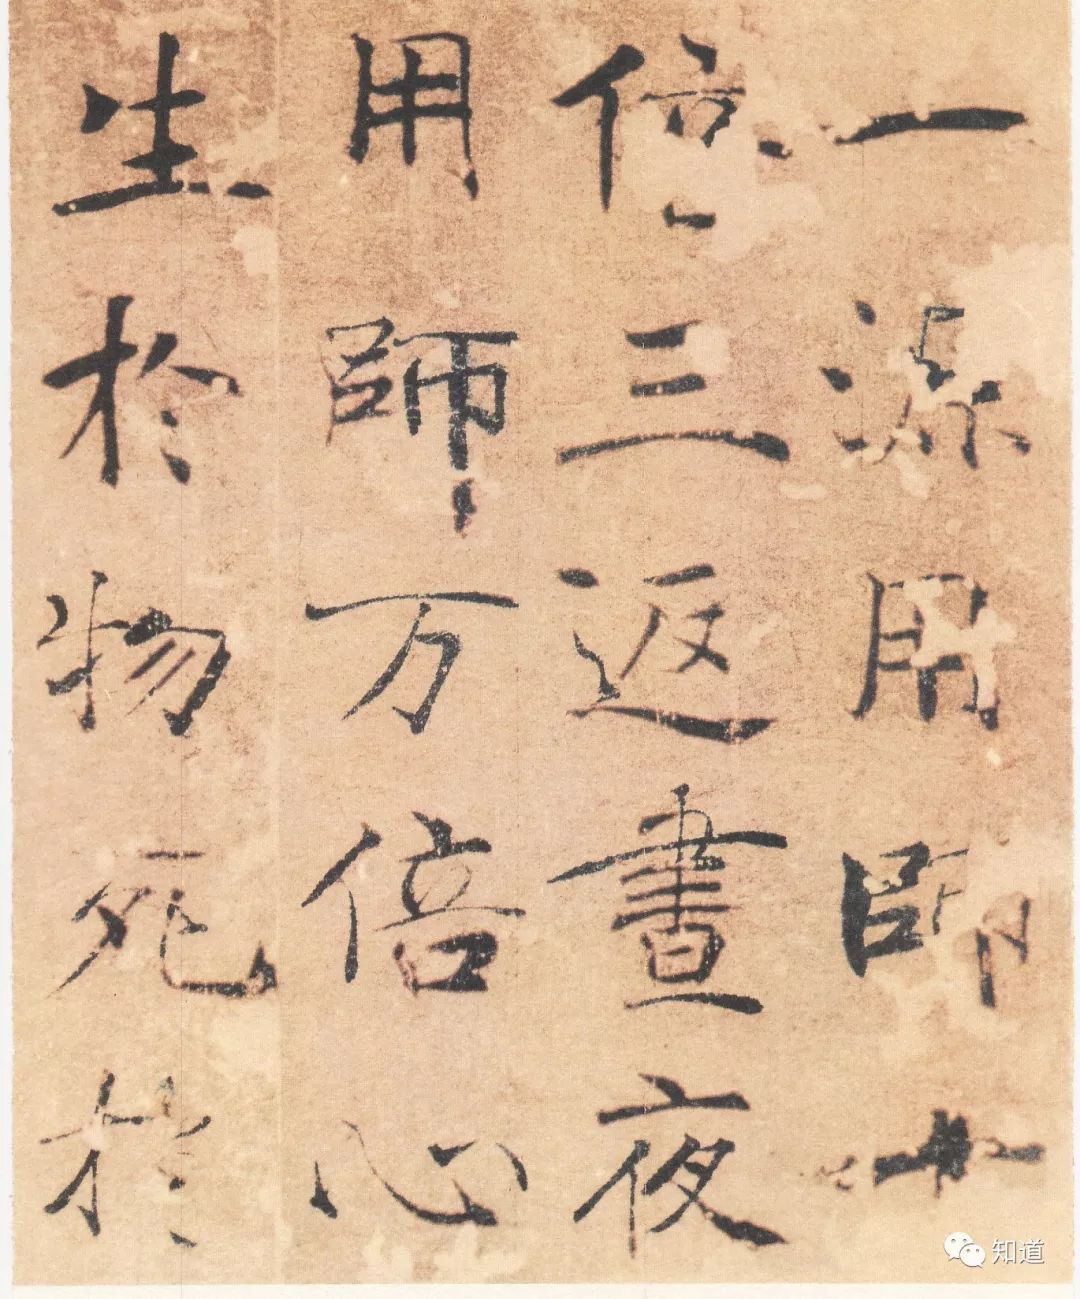 一源用師十
倍三返晝夜
用師万倍心
生於物死於
知道